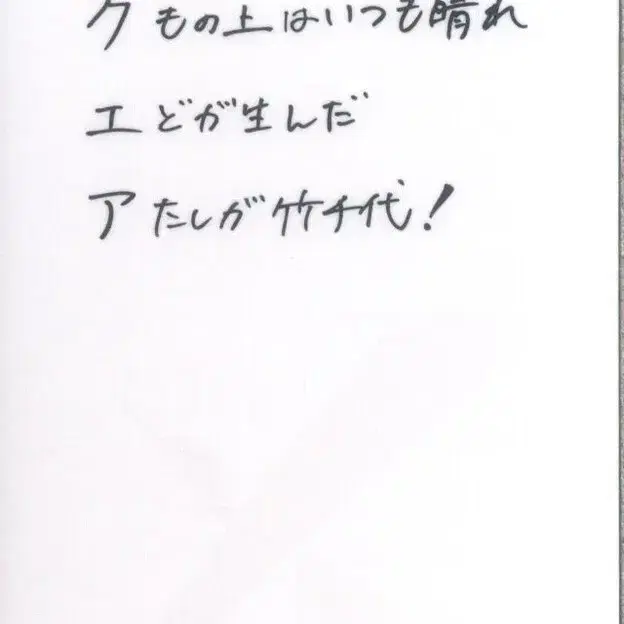 クもの上はいつも晴れ
エどが生んだ
アたしが竹千代!